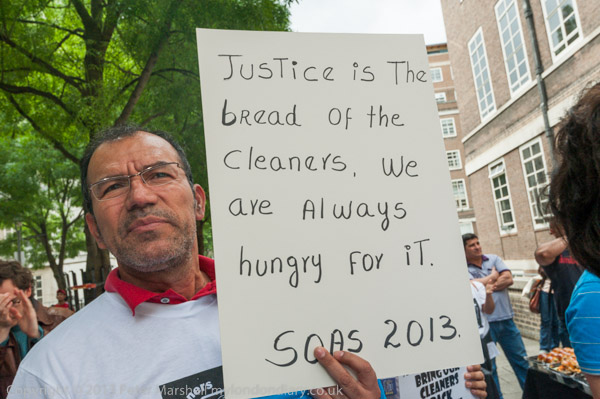 Justice is The
bread of the
cleaners. We
are Always
hungry for it.
SOAS 2013.
BRING OUR
CLEANERS
Copyright © 2013 Peter Marshall mylondondiary.co.uk